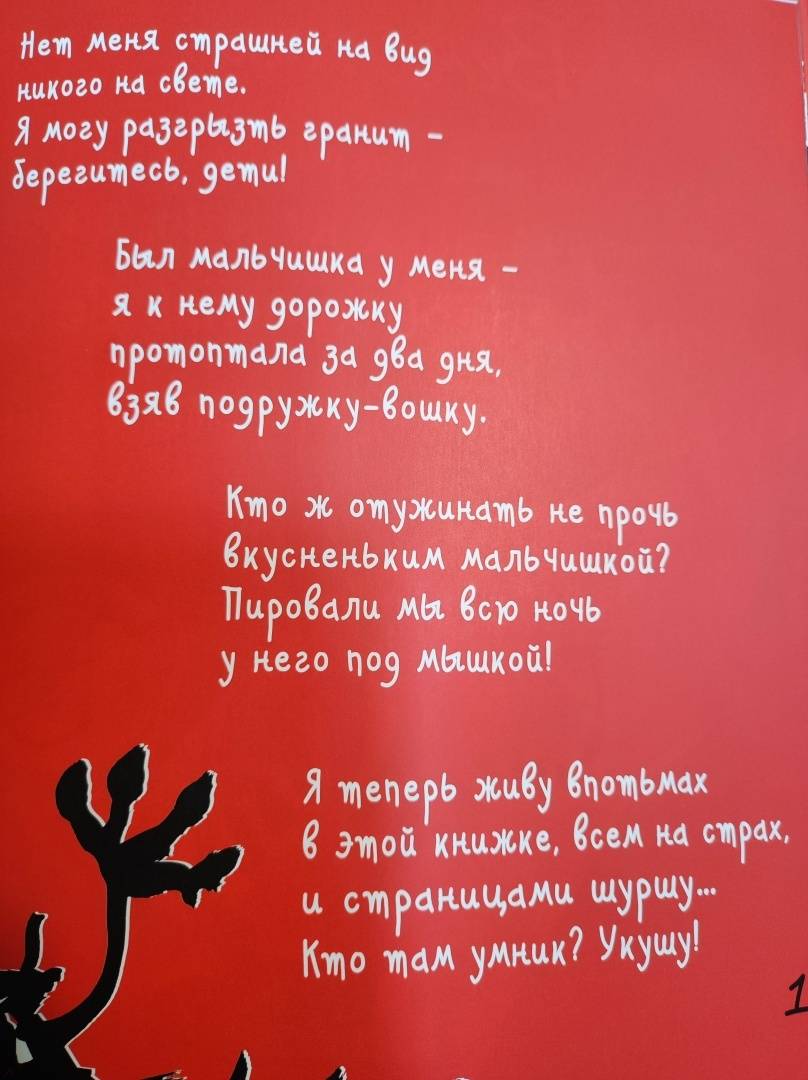 Нет меня страшней на вид
никого на свете.
Я могу разгрызть гранит –
берегитесь, дети!
Был мальчишка у меня –
я к нему дорожку
протоптала за два дня,
взяв подружку-вошку.
Кто ж отужинать не прочь
вкусненьким мальчишкой?
Пировали мы всю ночь
у него под мышкой!
Я теперь живу впотьмах
в этой книжке, всем на страх,
и страницами шуршу...
Кто там умник? Укушу!
1